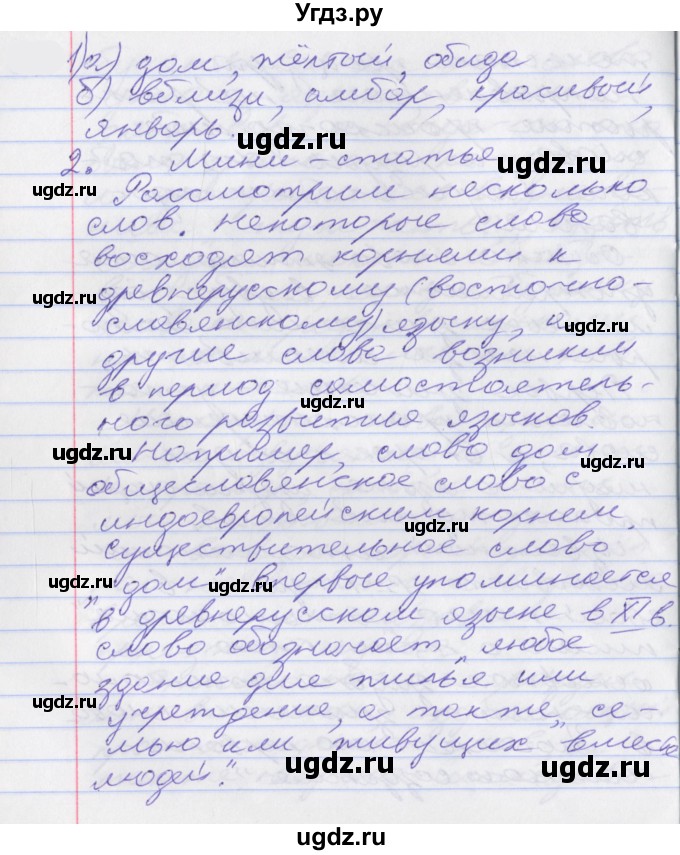 Угдз.ру
1) а) дом, жёлтый, обида
б) вблизи, амбар, красивый,
январь. ugdz.ru
2. Мини-статья ugdz.ru
ugdz.ru Рассмотрим несколько
слов. Некоторые слова
восходят корнями к
ugdz.ru древнерусскому (восточно-
славянскому) языку, а ugdz.ru
другие слова возникли
в период самостоятель-
ugdz.ru
ного развития языков.
ugdz.ru Например, слово дом
общеславянское слово с ugdz.ru
индоевропейским корнем.
ugdz.ru
Существительное слово
ugdz.ru „дом" впервые упоминается
в древнерусском языке в XI в.
ugdz.ru
слово обозначает „любое
здание для жилья или
ugdz.ru учреждение, а также „се-
мью или „живущих" вместе
ugdz.ru ugdz.ru
людей".
ugdz.ru